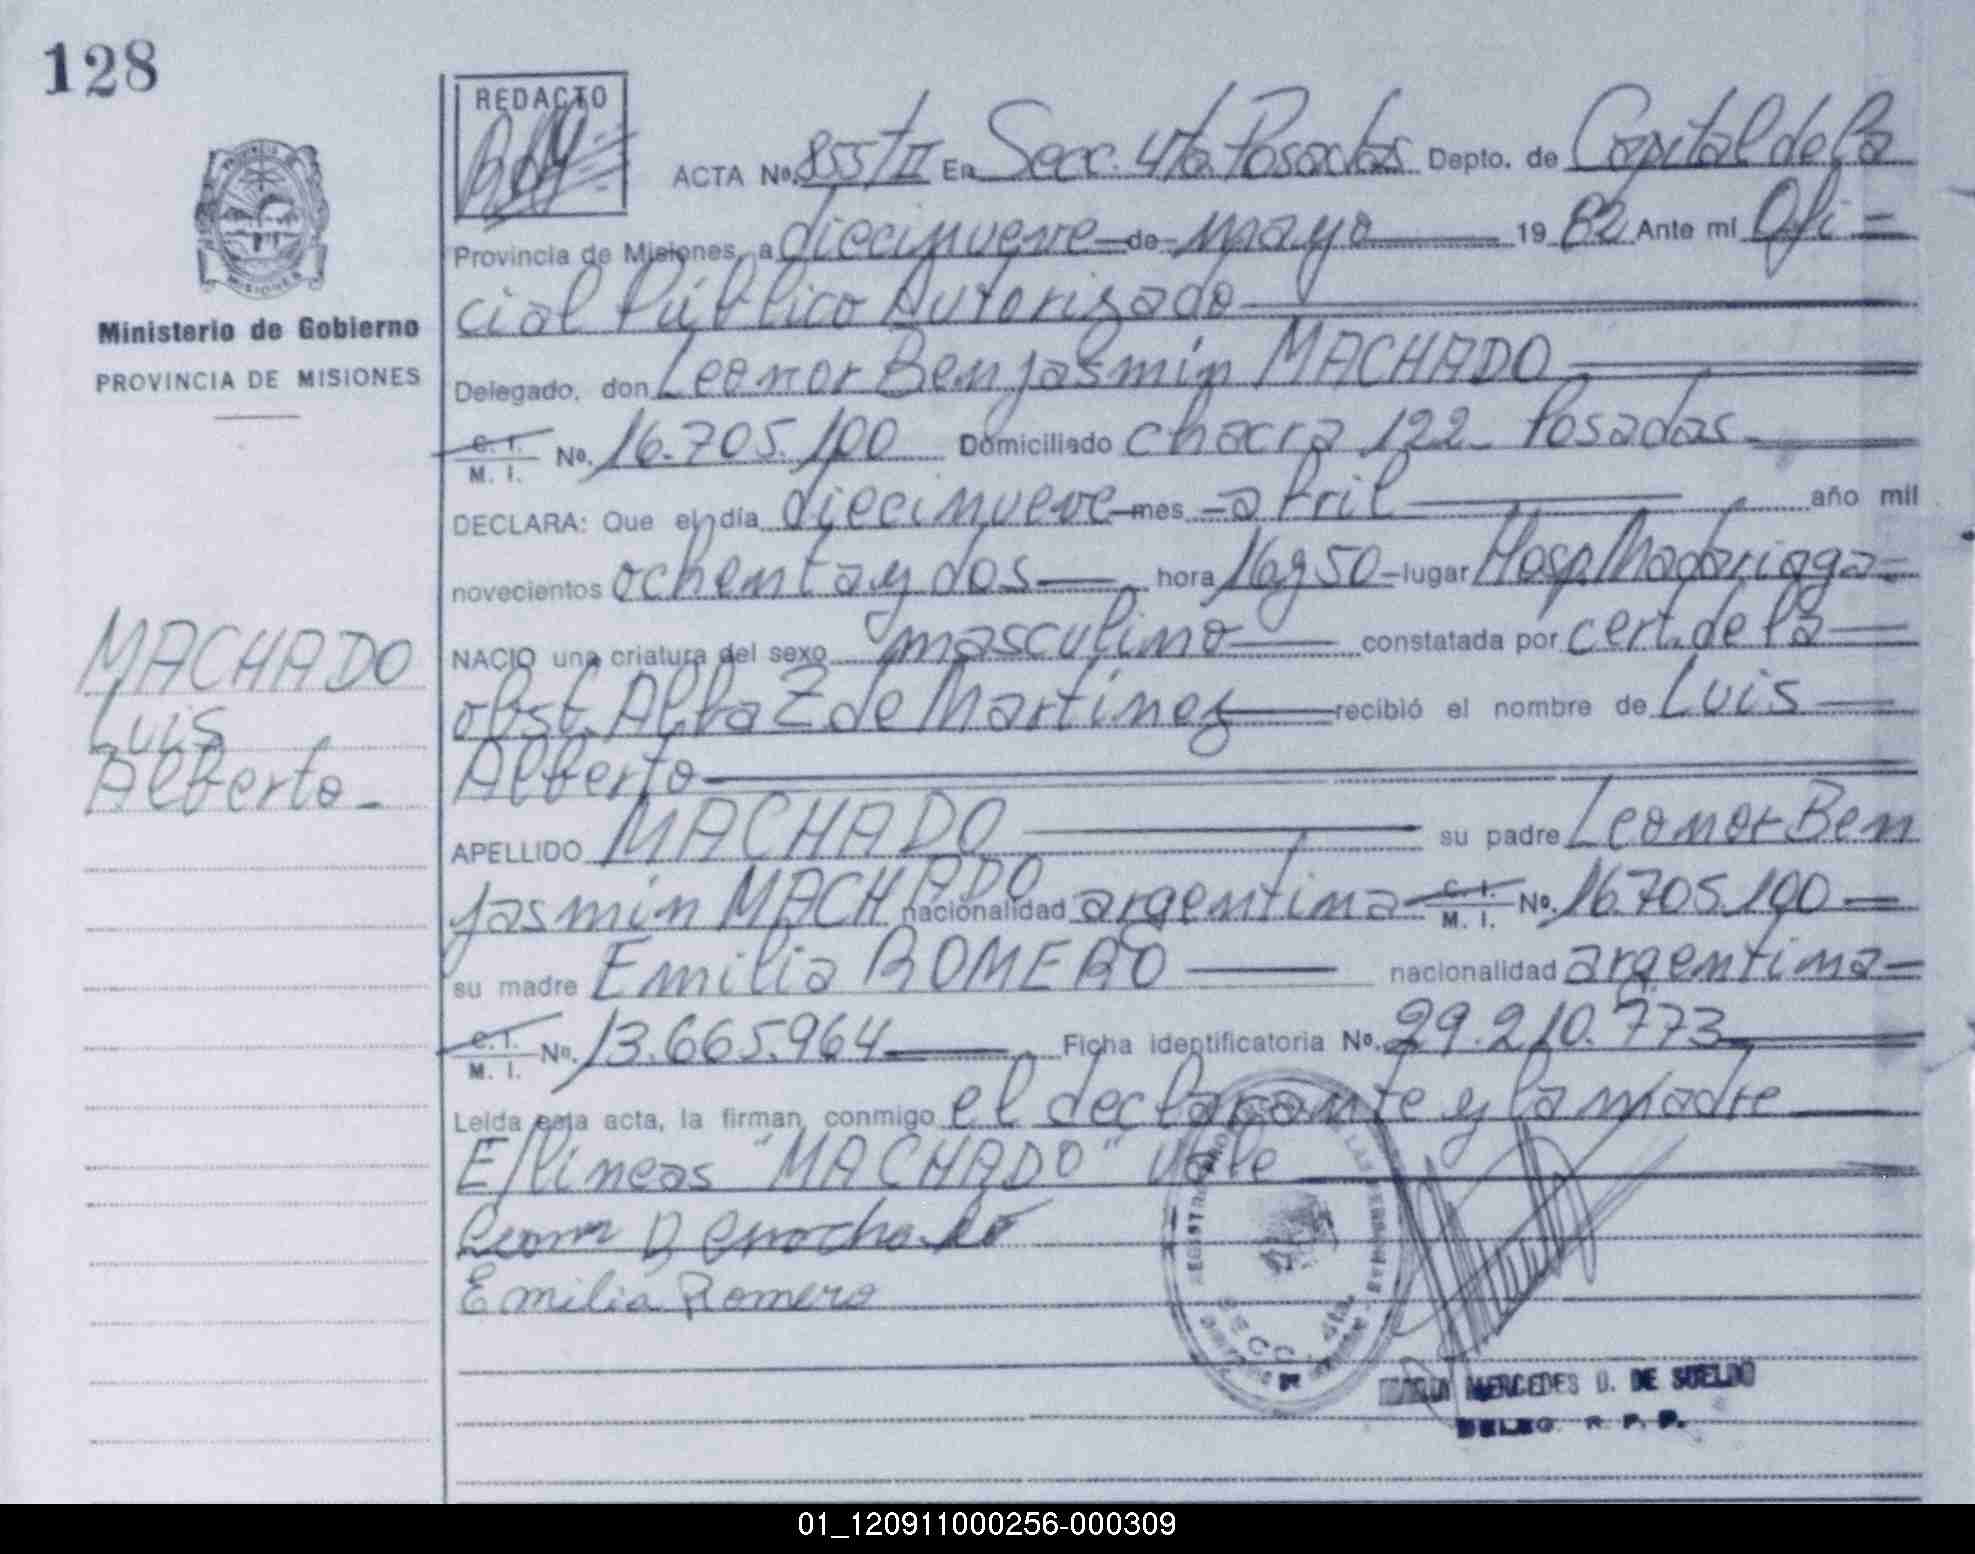 128
REDACTO
ACTA Nº 855/II En Secc. 4ta. Posadas Depto. de Capital de la
Provincia de Misiones, a diecinueve de mayo 1982 Ante mi Ofi=
cial Público Autorizado
Ministerio de Gobierno
PROVINCIA DE MISIONES
Delegado, don Leonor Benjasmín MACHADO
C. I.
M. I. Nº. 16.705.100 Domiciliado chacra 122 Posadas
DECLARA: Que el día diecinueve mes abril año mil
novecientos ochenta y dos hora 16y50 lugar Hosp Madariaga
NACIO una criatura del sexo masculino constatada por cert. de la
MACHADO
Luis
Alberto
obst. Alba Z de Martinez recibió el nombre de Luis
Alberto
APELLIDO MACHADO su padre Leonor Ben
jasmín MACHADO nacionalidad argentina C. I.
M. I. Nº. 16.705.100
su madre Emilia ROMERO nacionalidad argentina
C. I.
M. I. Nº. 13.665.964 Ficha identificatoria Nº. 29.210.773
Leída esta acta, la firman conmigo el declarante y la madre
E/líneas "MACHADO" Vale
Emilia Romero
SECC. 4ta.
MERCEDES D. DE SUELDO
DELEG. R. P. P.
01_120911000256-000309